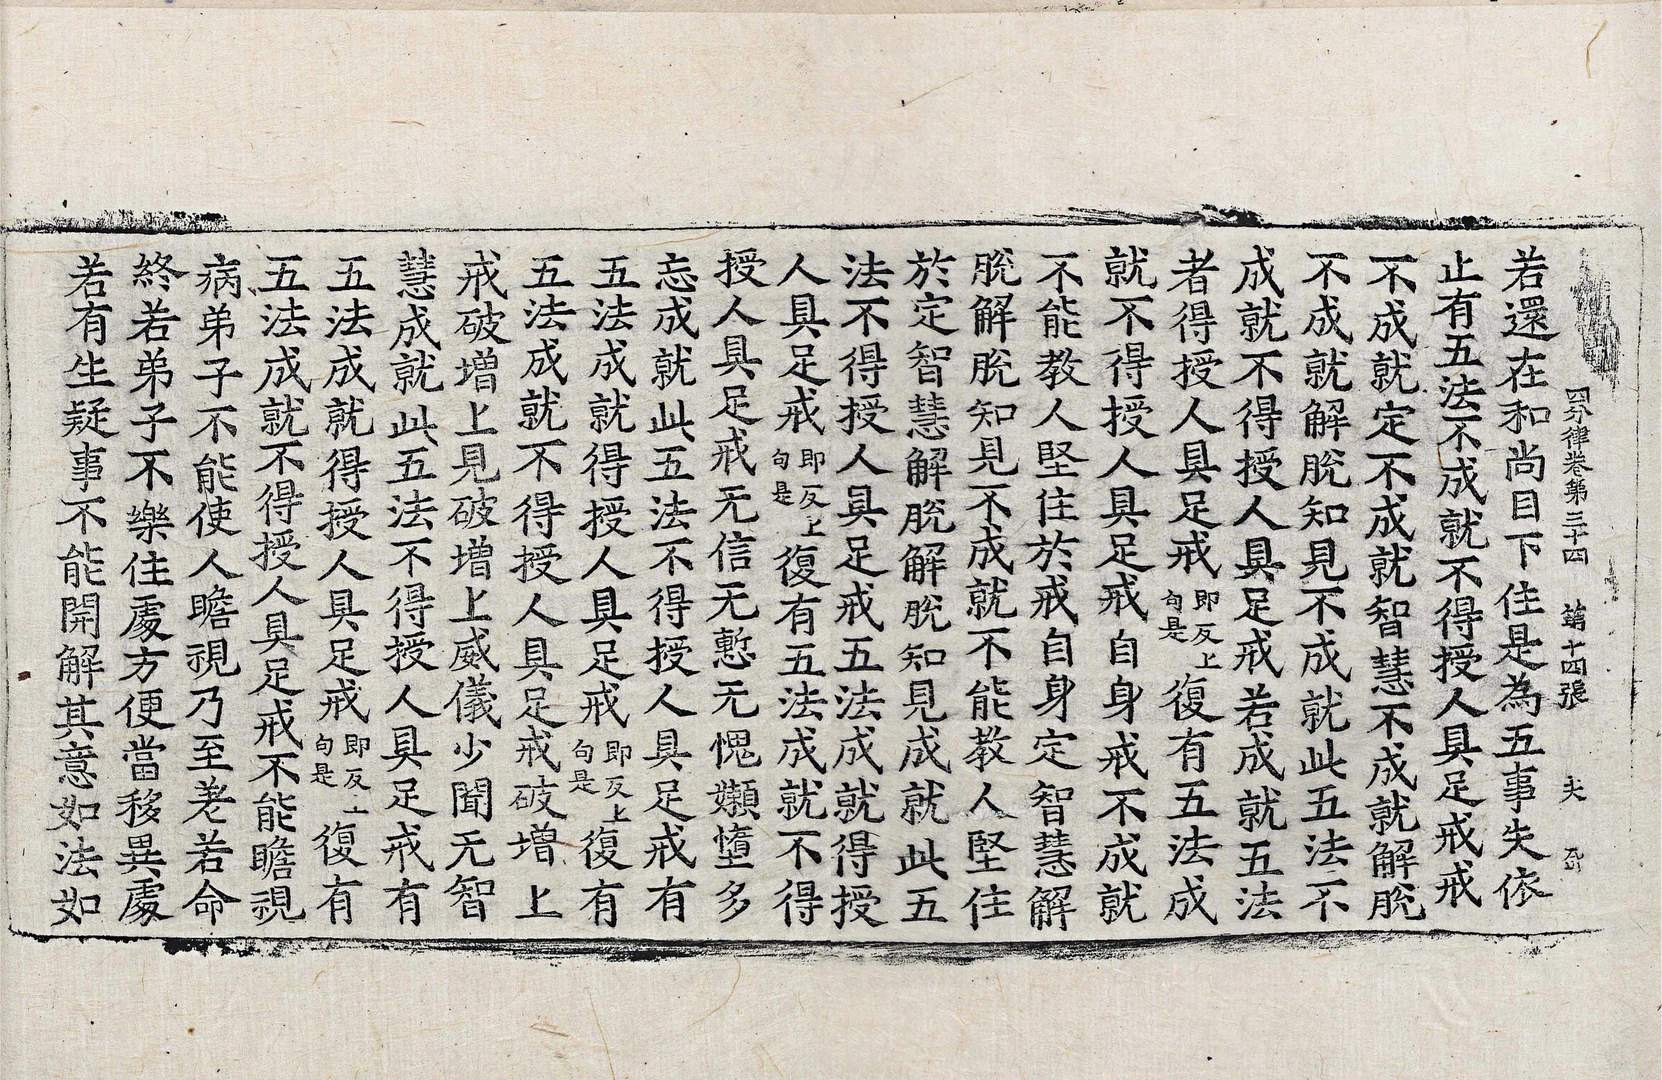 四分律卷第三十四 第十四張 夫
若還在和尚目下住是為五事失依
止有五法不成就不得授人具足戒戒
不成就定不成就智慧不成就解脫
不成就解脫知見不成就此五法不
成就不得授人具足戒若成就五法
者得授人具足戒即反上句是復有五法成
就不得授人具足戒自身戒不成就
不能教人堅住於戒自身定智慧解
脫解脫知見不成就不能教人堅住
於定智慧解脫解脫知見成就此五
法不得授人具足戒五法成就得授
人具足戒即反上句是復有五法成就不得
授人具足戒无信无慙无愧嬾墮多
忘成就此五法不得授人具足戒有
五法成就得授人具足戒即反上句是復有
五法成就不得授人具足戒破增上
戒破增上見破增上威儀少聞无智
慧成就此五法不得授人具足戒有
五法成就得授人具足戒即反上句是復有
五法成就不得授人具足戒不能瞻視
病弟子不能使人瞻視乃至差若命
終若弟子不樂住處方便當移異處
若有生疑事不能開解其意如法如